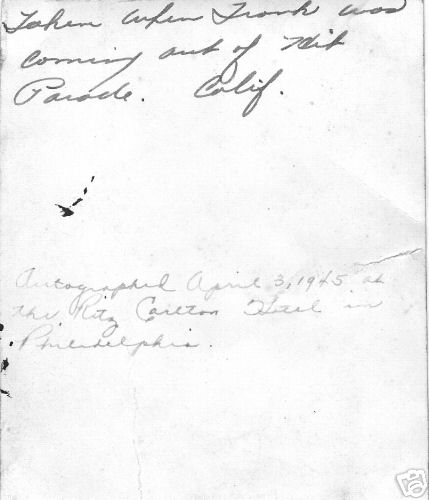 Taken when Frank was
coming out of Hit
Parade. Calif.
Autographed April 3, 1945 at
the Ritz Carlton Hotel in
Philadelphia.